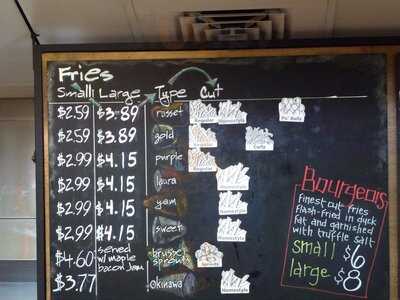 Fries
Small Large Type Cut
$2.59 $3.89 russet Regular Homestyle Po' Boy
$2.59 $3.89 gold Regular Curly
$2.99 $4.15 purple Regular
$2.99 $4.15 laura Homestyle
$2.99 $4.15 yam Homestyle
$2.99 $4.15 sweet Homestyle
$4.60 served w/ maple bacon jam brussel sprouts
$3.77 Okinawa Homestyle
Bourgeois
Finest cut fries
flash-fried in duck
fat and garnished
with truffle salt
small $6
large $8